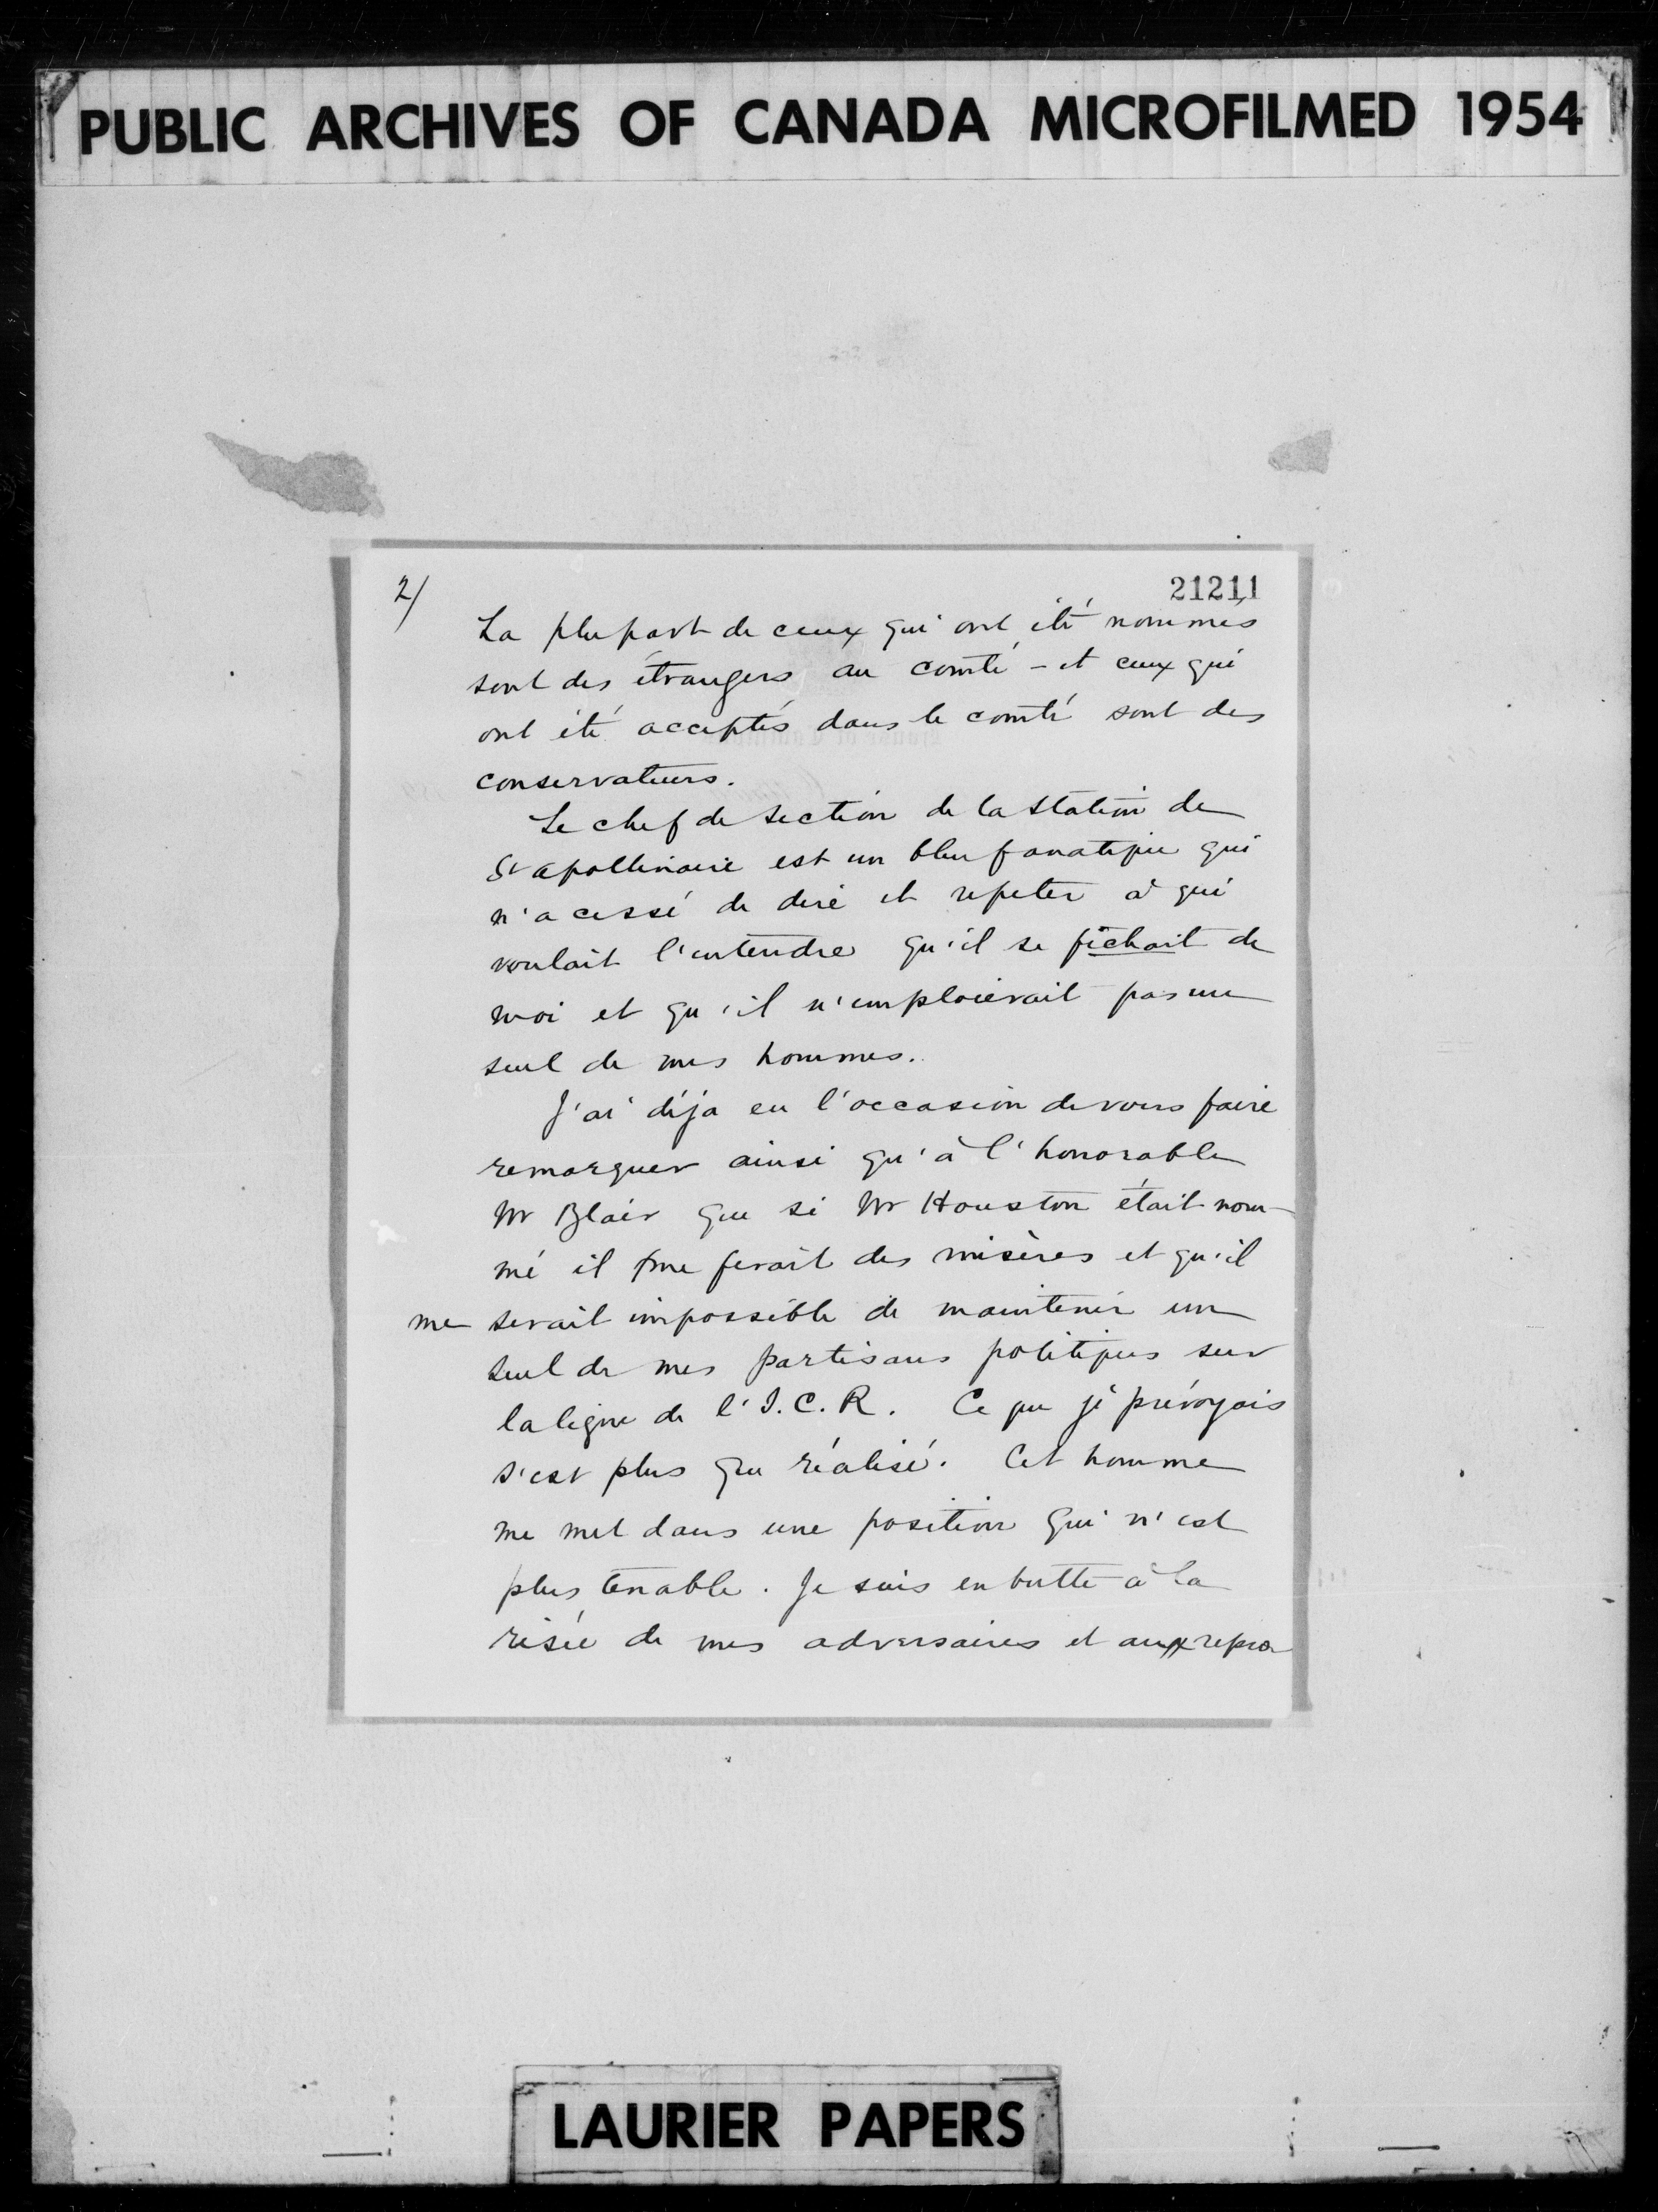 PUBLIC ARCHIVES OF CANADA MICROFILMED 1954
2/
21211
La plupart de ceux qui ont été nommés
sont des étrangers au comté - et ceux qui
ont été acceptés dans le comté sont des
conservateurs.
Le chef de section de la station de
St Apollinaire est un bleu fanatique qui
n'a cessé de dire et repeter à qui
voulait l'entendre qu'il se fichait de
moi et qu'il n'emploierait pas un
seul de mes hommes.
J'ai déja eu l'occasion de vous faire
remarquer ainsi qu'à l'honorable
Mr Blair que si Mr Houston était nom-
mé il me ferait des misères et qu'il
me serait impossible de maintenir un
seul de mes partisans politiques sur
la ligne de l'I.C.R. Ce que je prévoyais
s'est plus que réalisé. Cet homme
me met dans une position qui n'est
plus tenable. Je suis en butte à la
risée de mes adversaires et aux repro
LAURIER PAPERS